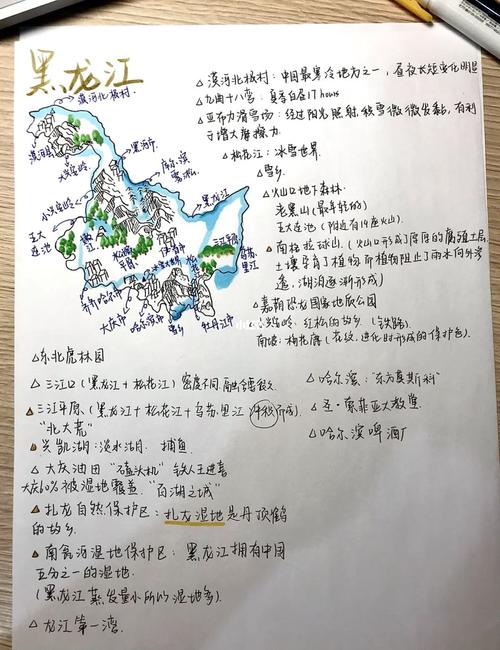 黑龙江
漠河北极村.
漠河县
大兴安岭
黑河市
小兴安岭
五大
连池
黑龙江
三江平原
乌苏
里江
齐齐哈尔市
大庆市
哈尔滨市
雪乡
牡丹江市
△ 漠河北极村：中国最寒冷地方之一，昼夜长短变化明显
△ 九曲十八弯：夏季白昼17 hours
△ 亚布力滑雪场：经过阳光照射，积雪微微发黏，有利
于增大摩擦力
△ 松花江：冰雪世界.
△ 雪乡
△ 火山口地下森林.
老黑山（最年轻的）
五大连池（附近有14座火山）.
△ 南格拉球山.（火山口形成了厚厚的腐殖土层,
土壤孕育了植物而植物阻止了雨水向外渗
透，湖泊逐渐形成）
△ 嘉荫恐龙国家地质公园
△ 小兴安岭：红松的故乡（铁路）.
南坡：梅花鹿（花纹，进化时形成的保护色）.
△ 东北虎林园
△ 三江口（黑龙江＋松花江）密度不同,融合缓慢.
△ 三江平原.（黑龙江＋松花江＋乌苏里江 冲积而成）.
“北大荒”
△ 兴凯湖：淡水湖. 捕鱼
△ 大庆油田“磕头机” 铁人王进喜
大庆10%被湿地覆盖.“百湖之城”
△ 扎龙自然保护区：扎龙湿地是丹顶鹤
的故乡.
△ 南瓮河湿地保护区：黑龙江拥有中国
五分之一的湿地.
（黑龙江蒸发量小所以湿地多）.
△ 龙江第一湾.
△ 哈尔滨：“东方莫斯科”
△ 圣·索菲亚大教堂.
△ 哈尔滨啤酒厂